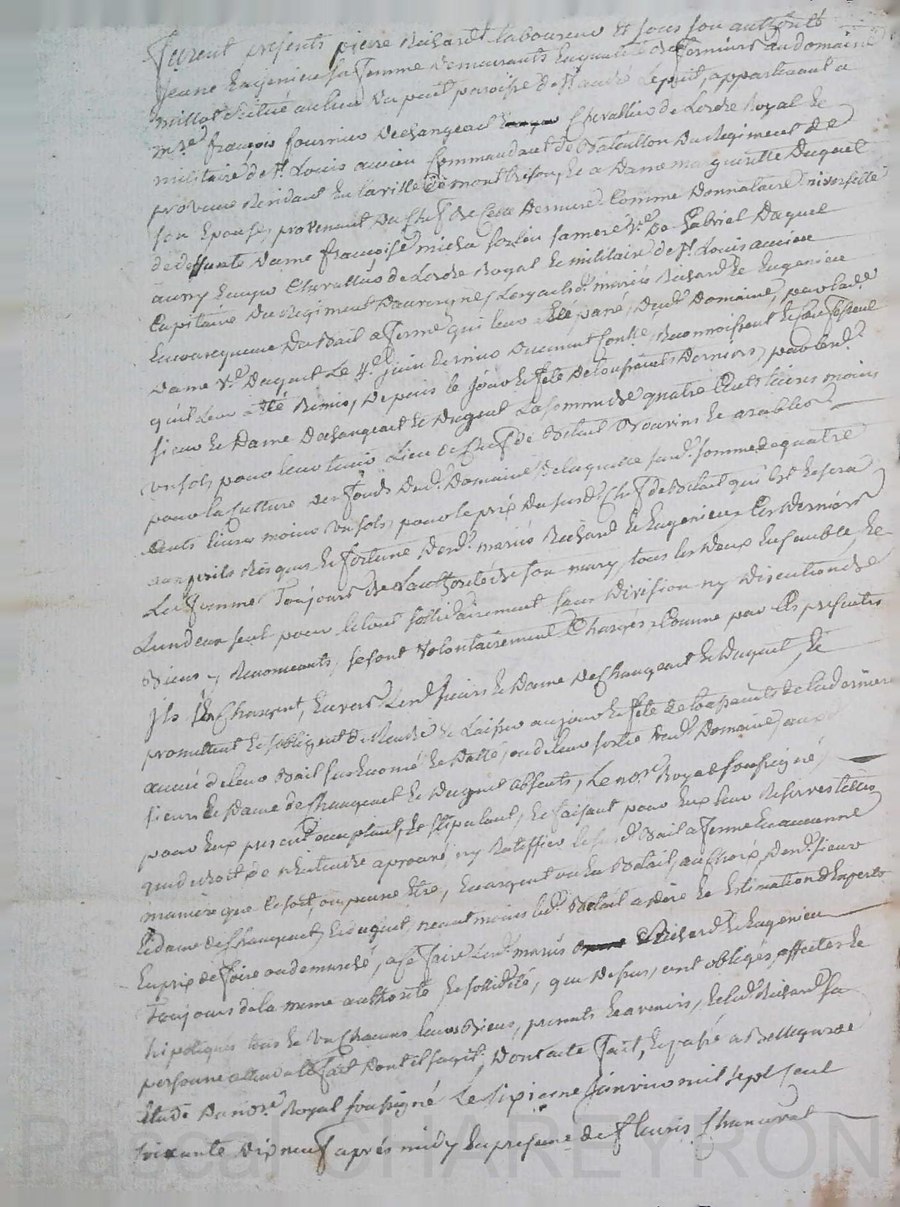 furent présents pierre Richard Laboureur & sous son authorité
jeanne Eugenieu sa femme demeurants En qualité de fermiers au domaine
millot situé au lieu du puit paroisse de St andré Le puit, appartenant à
mre françois fournier Dechangeact Chevallier de Lordre Royal Et
militaire de St Louis ancien Commandant de Bataillon du Regiment de
provence Residant En la ville de montbrison, Et a Dame margueritte Duguet
son Epouse, provenant du Chef de Cette Derniere Comme Donnataire
de deffunte Dame françoise micha sa mere Ve De gabriel Duguet
Ecuyer Chevallier de Lordre Royal Et militaire de St Louis ancien
Capitaine du Regiment Dauvergne, Lesquels mariés Richard Et Eugenieu
En consequence du Bail a ferme qui leur a été passé, dud Domaine, par lade
Dame Ve Duguet Le 4e juin dernier
qu'il leur a été Remis, depuis le jour Et fête de Toussaints Derniers, par lesd
sieur Et Dame Dechangeact Et Duguet La somme de quatre Cents livres moins
un sols pour leur tenir Lieu de Chef de Betail Bouvins Et arables
pour la Culture des fonds dud Domaine, de laquelle sude somme de quatre
Cents livres moins un sols, pour le prix du susd Chef de Betail qui Est Et sera
aux perils Risques Et fortune desd mariés Richard Et Eugenieu Ces Derniers
La femme Toujours de Lauthorité de son mary, tous les deux Ensemble Et
Lun deux seul pour le tout sollidairement sans Division ny Discution de
Biens y Renonceants, se sont volontairement Chargés Comme par Ces presentes
Ils sen Chargent, Envers Lesd sieurs Et Dame deChangeact Et Duguet, Et
promettent Et sobligent de Rendre & Laisser au jour Et fête de toussaints de la derniere
année de leur Bail sus Enoncé Et Datté, ou de leur sortie dud Domaine, auxd
sieurs Et Dame de Changeact Et Duguet absents, Le nore Royal soussigné
pour Eux present acceptant, Et stipulant, Et faisant pour Eux leur Reserves telles
que de droit de nentendre aprouvé, ny Ratiffier le susd Bail a ferme En aucune
maniere que ce soit, ou puisse Etre, En argent ou En Betail, au Choix, desd sieur
Et dame de Changeact, Et duguet, neantmoins led Betail a dire Et Estimation dExperts
En prix de foire ou de marché, a Ce faire Lesd mariés Richard Et Eugenieu
Toujours de la meme authorité Et sollidité, que dessus, ont obligés, affectés Et
hipotequés tous Et Un Chacuns leurs Biens, presents Et avenirs, Et led Richard sa
personne attendu le fait dont il sagit, Dont acte fait, Et passé a Bellegarde
étude du nore Royal soussigné Le sixieme janvier mil sept Cent
soixante dix neuf après midy En presence de fleuris Chancerat
Pascal CHAREYRON